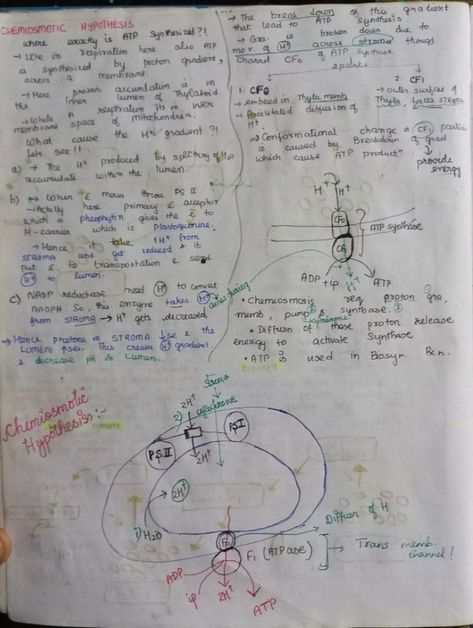 CHEMIOSMOTIC HYPOTHESIS
where exactly is ATP synthesized?!
→ Like in respiration here also ATP
is synthesized by proton gradient,
across a membrane.
→ Here proton accumulation is in
the inner lumen of Thylakoid
→ While in respiration H+ in inter
membrane space of mitochondria.
What cause the H+ gradient?!
Lets see!!
a) → The H+ produced by splitting of H2O
accumulate within the lumen.
b) When e move throu PS II
→ Actually here primary e acceptor
which is pheophytin gives the e to
H-carrier which is Plastoquinone.
→ Hence it take 1H+ from
STROMA and get reduced & is
put e to transportation & send
H+ to lumen.
c) NADP reductase need H+ to convert
NADPH. So, this enzyme takes H+
from STROMA → H+ gets decreased
→ Hence protons in STROMA ↓se & the
LUMEN ↑ses. This creates H+ gradient.
& decrease pH in Lumen.
→ The break down of this gradient
that lead to ATP synthesis
→ Gra is broken down due to
mov. of H+ across stroma though
channel CF0 of ATP synthase
2 parts
1. CF0
→ embeed in Thyla memb
→ Facilitated diffusion of
H+
2. CF1
→ outer surface of
Thyla faces stroma
→ Conformational change in CF1 particle
is caused by Breakdown of grad
which cause ATP product
provide
energy
H+ H+
CF0
CF1
ATP synthase
ADP + ip
H+
ATP
• Chemiosmosis req. proton gra,
memb, pump & synthase.
• Diffusion of these proton release
energy to activate Synthase
• ATP is used in Biosyn. Rxn.
Chemiosmotic
Hypothesis:-
Stroma
2) 2H+
cytochrome
PS II
PS I
2H+
2H+
1) H2O
Diffusn of H
F0
F1 (ATPase)
→ Trans memb.
channel!
ADP
ip
2H+
ATP